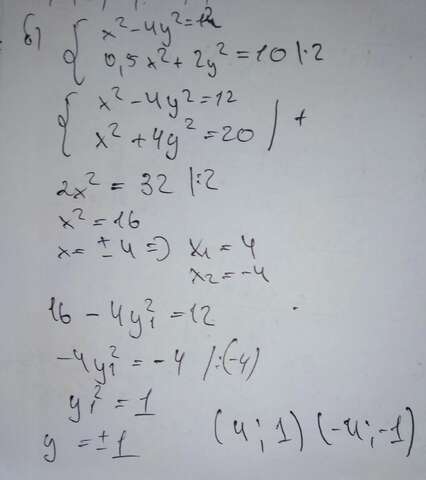 б) { x² - 4y² = 12
0,5x² + 2y² = 10 |·2
{ x² - 4y² = 12
x² + 4y² = 20 ) +
2x² = 32 |:2
x² = 16
x = ± 4 => x₁ = 4
x₂ = -4
16 - 4y₁² = 12
-4y₁² = -4 /:(-4)
y₁² = 1
y = ±1 (4; 1) (-4; -1)